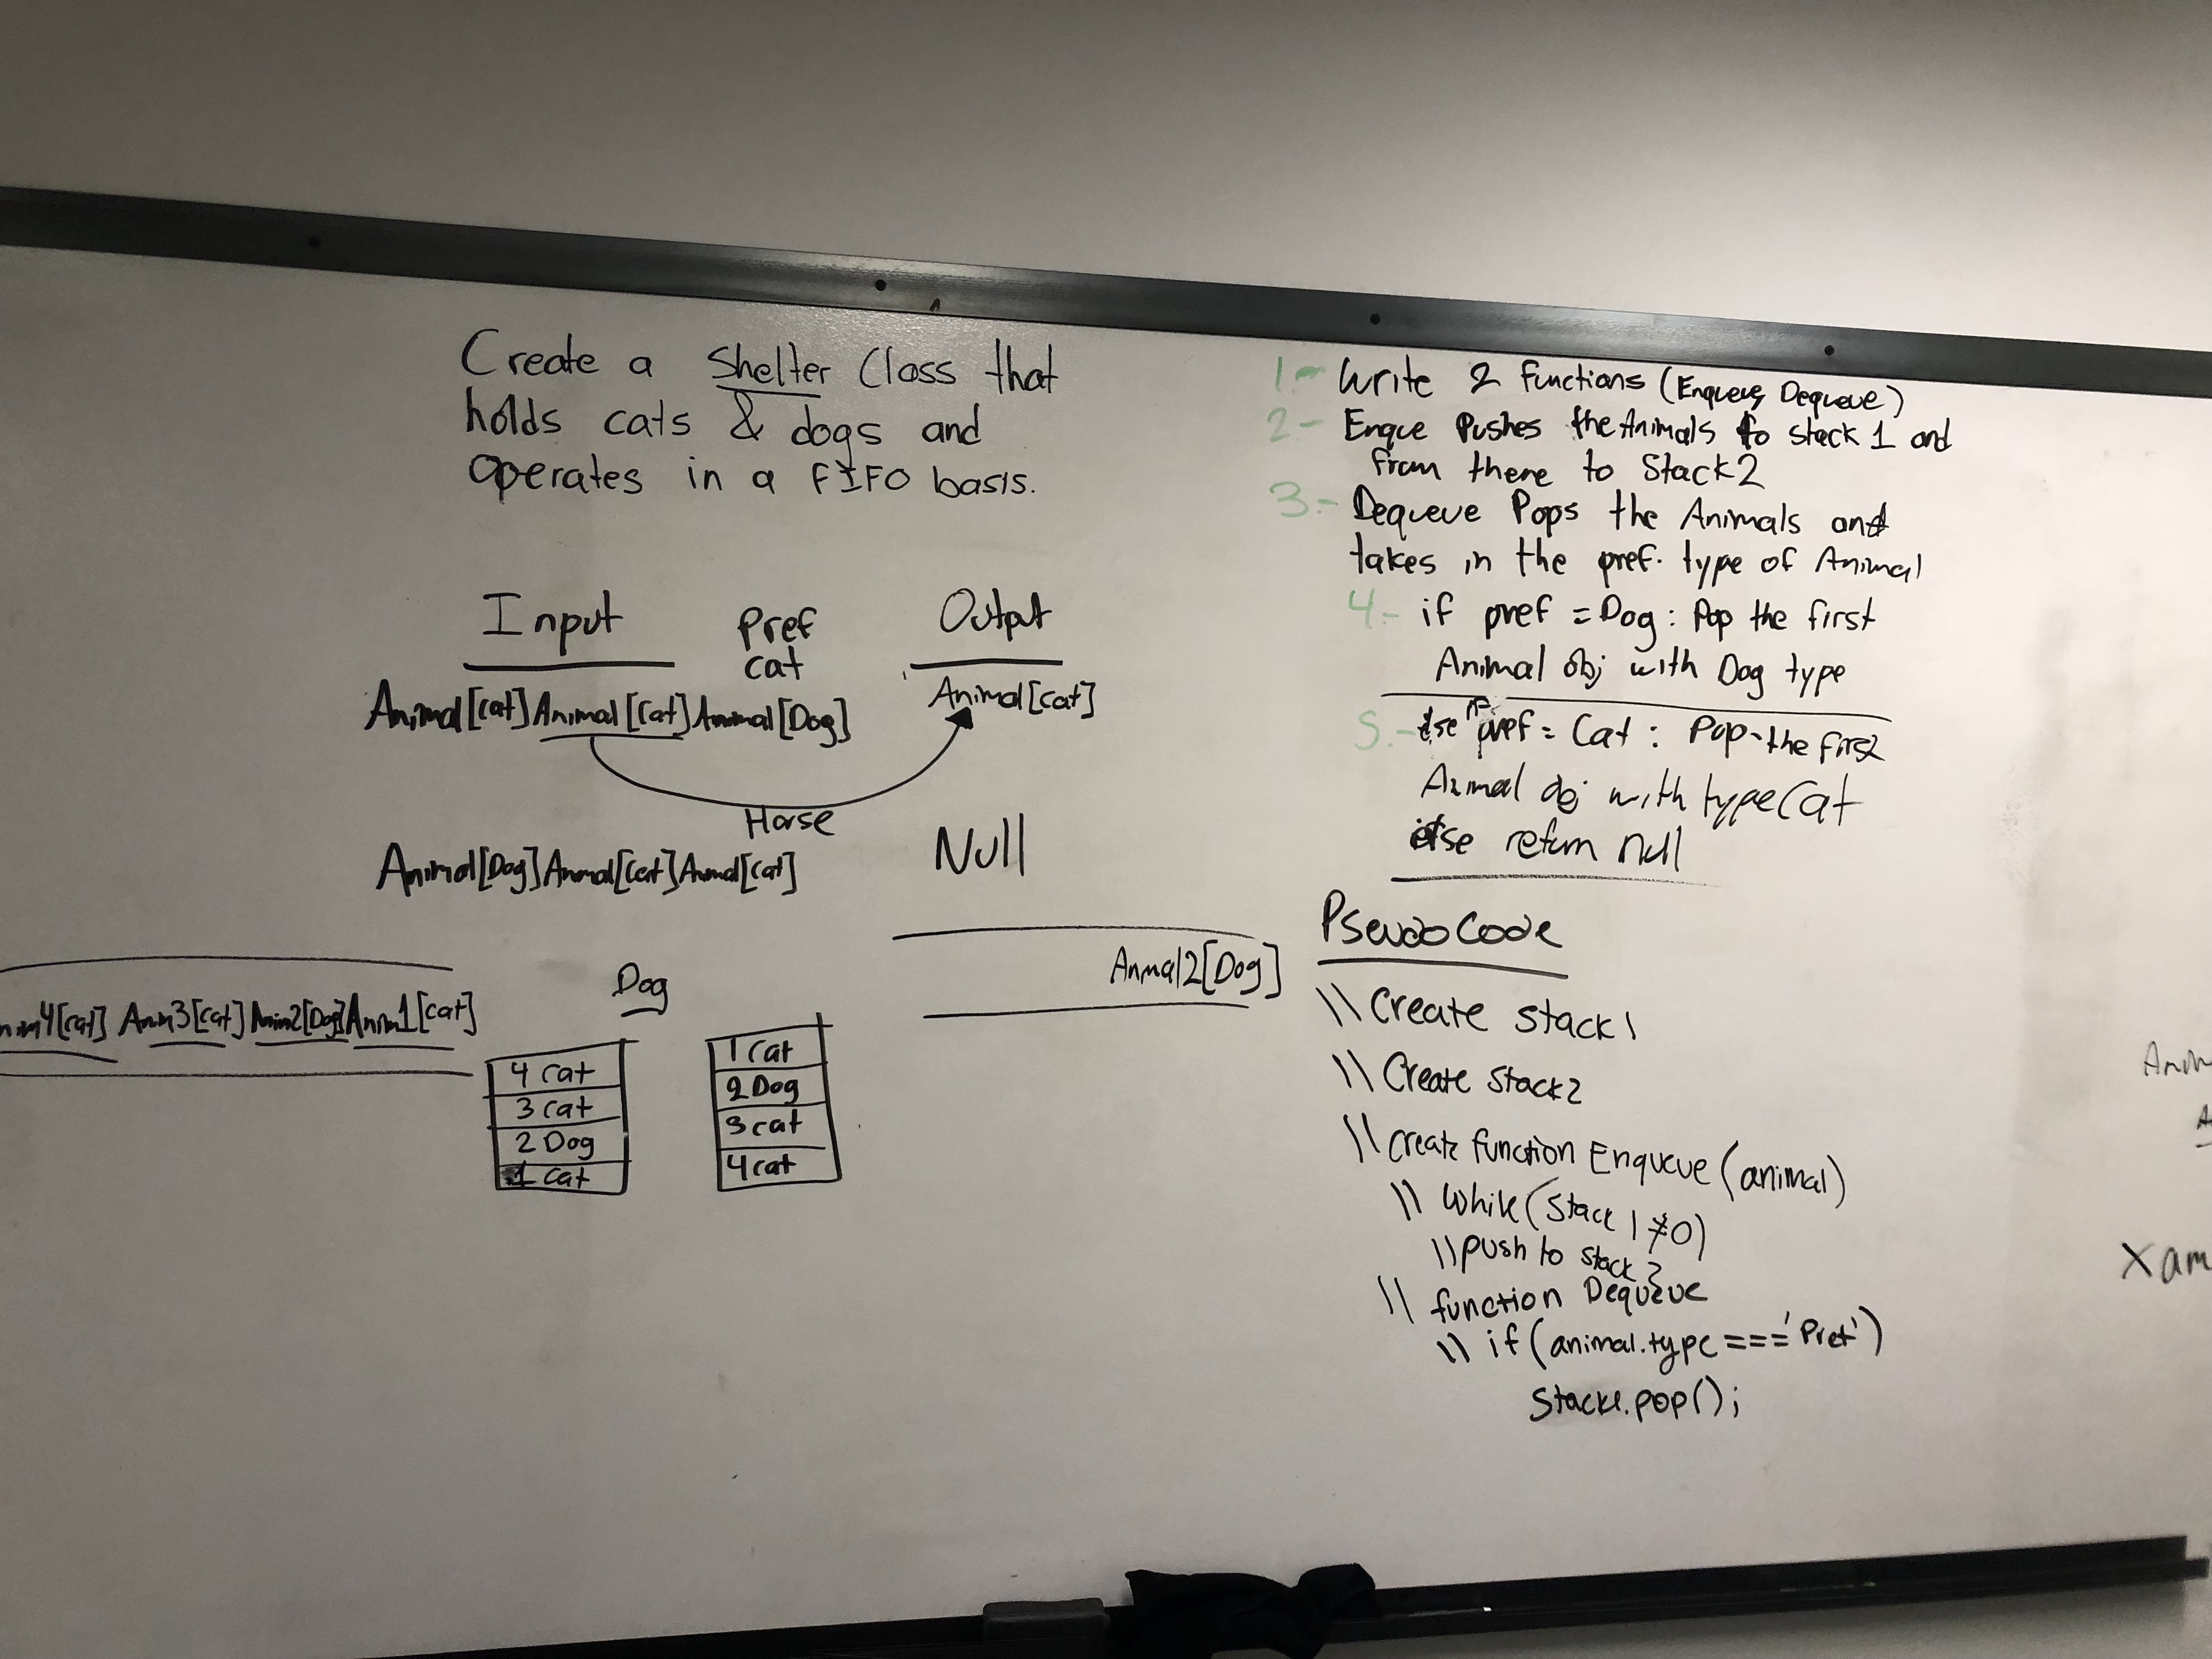 Create a Shelter Class that
holds cats & dogs and
operates in a FIFO basis.
Input Pref Output
cat
Animal[cat] Animal[cat] Animal[Dog] Animal[cat]
Horse
Animal[Dog] Animal[cat] Animal[cat] Null
Anim3[cat] Anim2[Dog] Anim1[cat]
Dog
Anmal2[Dog]
4 cat
3 cat
2 Dog
1 cat
1 cat
2 Dog
3 cat
4 cat
1.- Write 2 functions (Enqueue, Dequeue)
2.- Enque Pushes the Animals to stack 1 and
from there to Stack 2
3.- Dequeue Pops the Animals and
takes in the pref. type of Animal
4.- if pref = Dog: Pop the first
Animal obj with Dog type
5.- else if pref = Cat: Pop the first
Animal obj with type Cat
else return null
PseudoCode
\\ Create stack1
\\ Create stack2
\\ Create function Enqueue (animal)
\\ While (Stack 1 ≠ 0)
\\ push to stack 2
\\ function Dequeue
\\ if (animal.type === 'Pref')
.pop();
X am